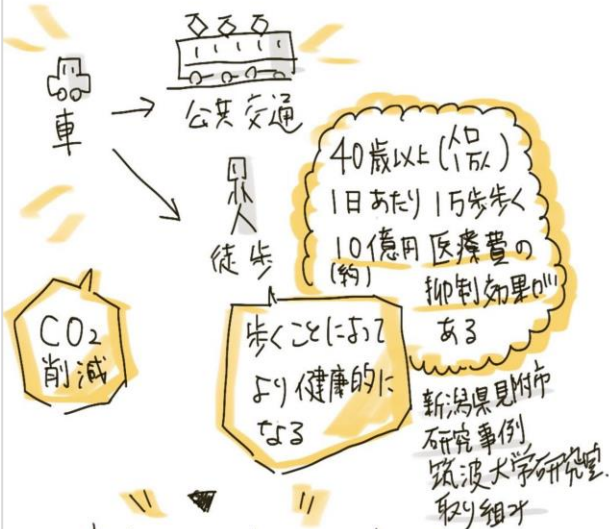 車
公共交通
徒歩
40歳以上(人口1万人)
1日あたり1万歩歩く
10億円医療費の
(約)
抑制効果が
ある
CO2
削減
歩くことによって
より健康的に
なる
新潟県見附市
研究事例
筑波大学研究室
取り組み